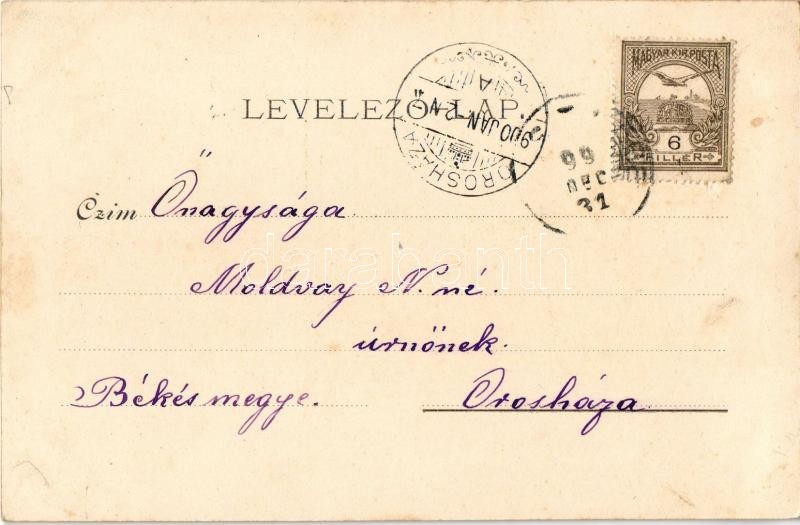 MAGYAR KIR. POSTA
6
FILLÉR
LEVELEZŐ-LAP.
OROSHÁZA
900 JAN 2 N
99
DEC
31
Czim Őnagysága
Moldvay N.né.
úrnőnek.
Békésmegye. Orosháza
darabanth